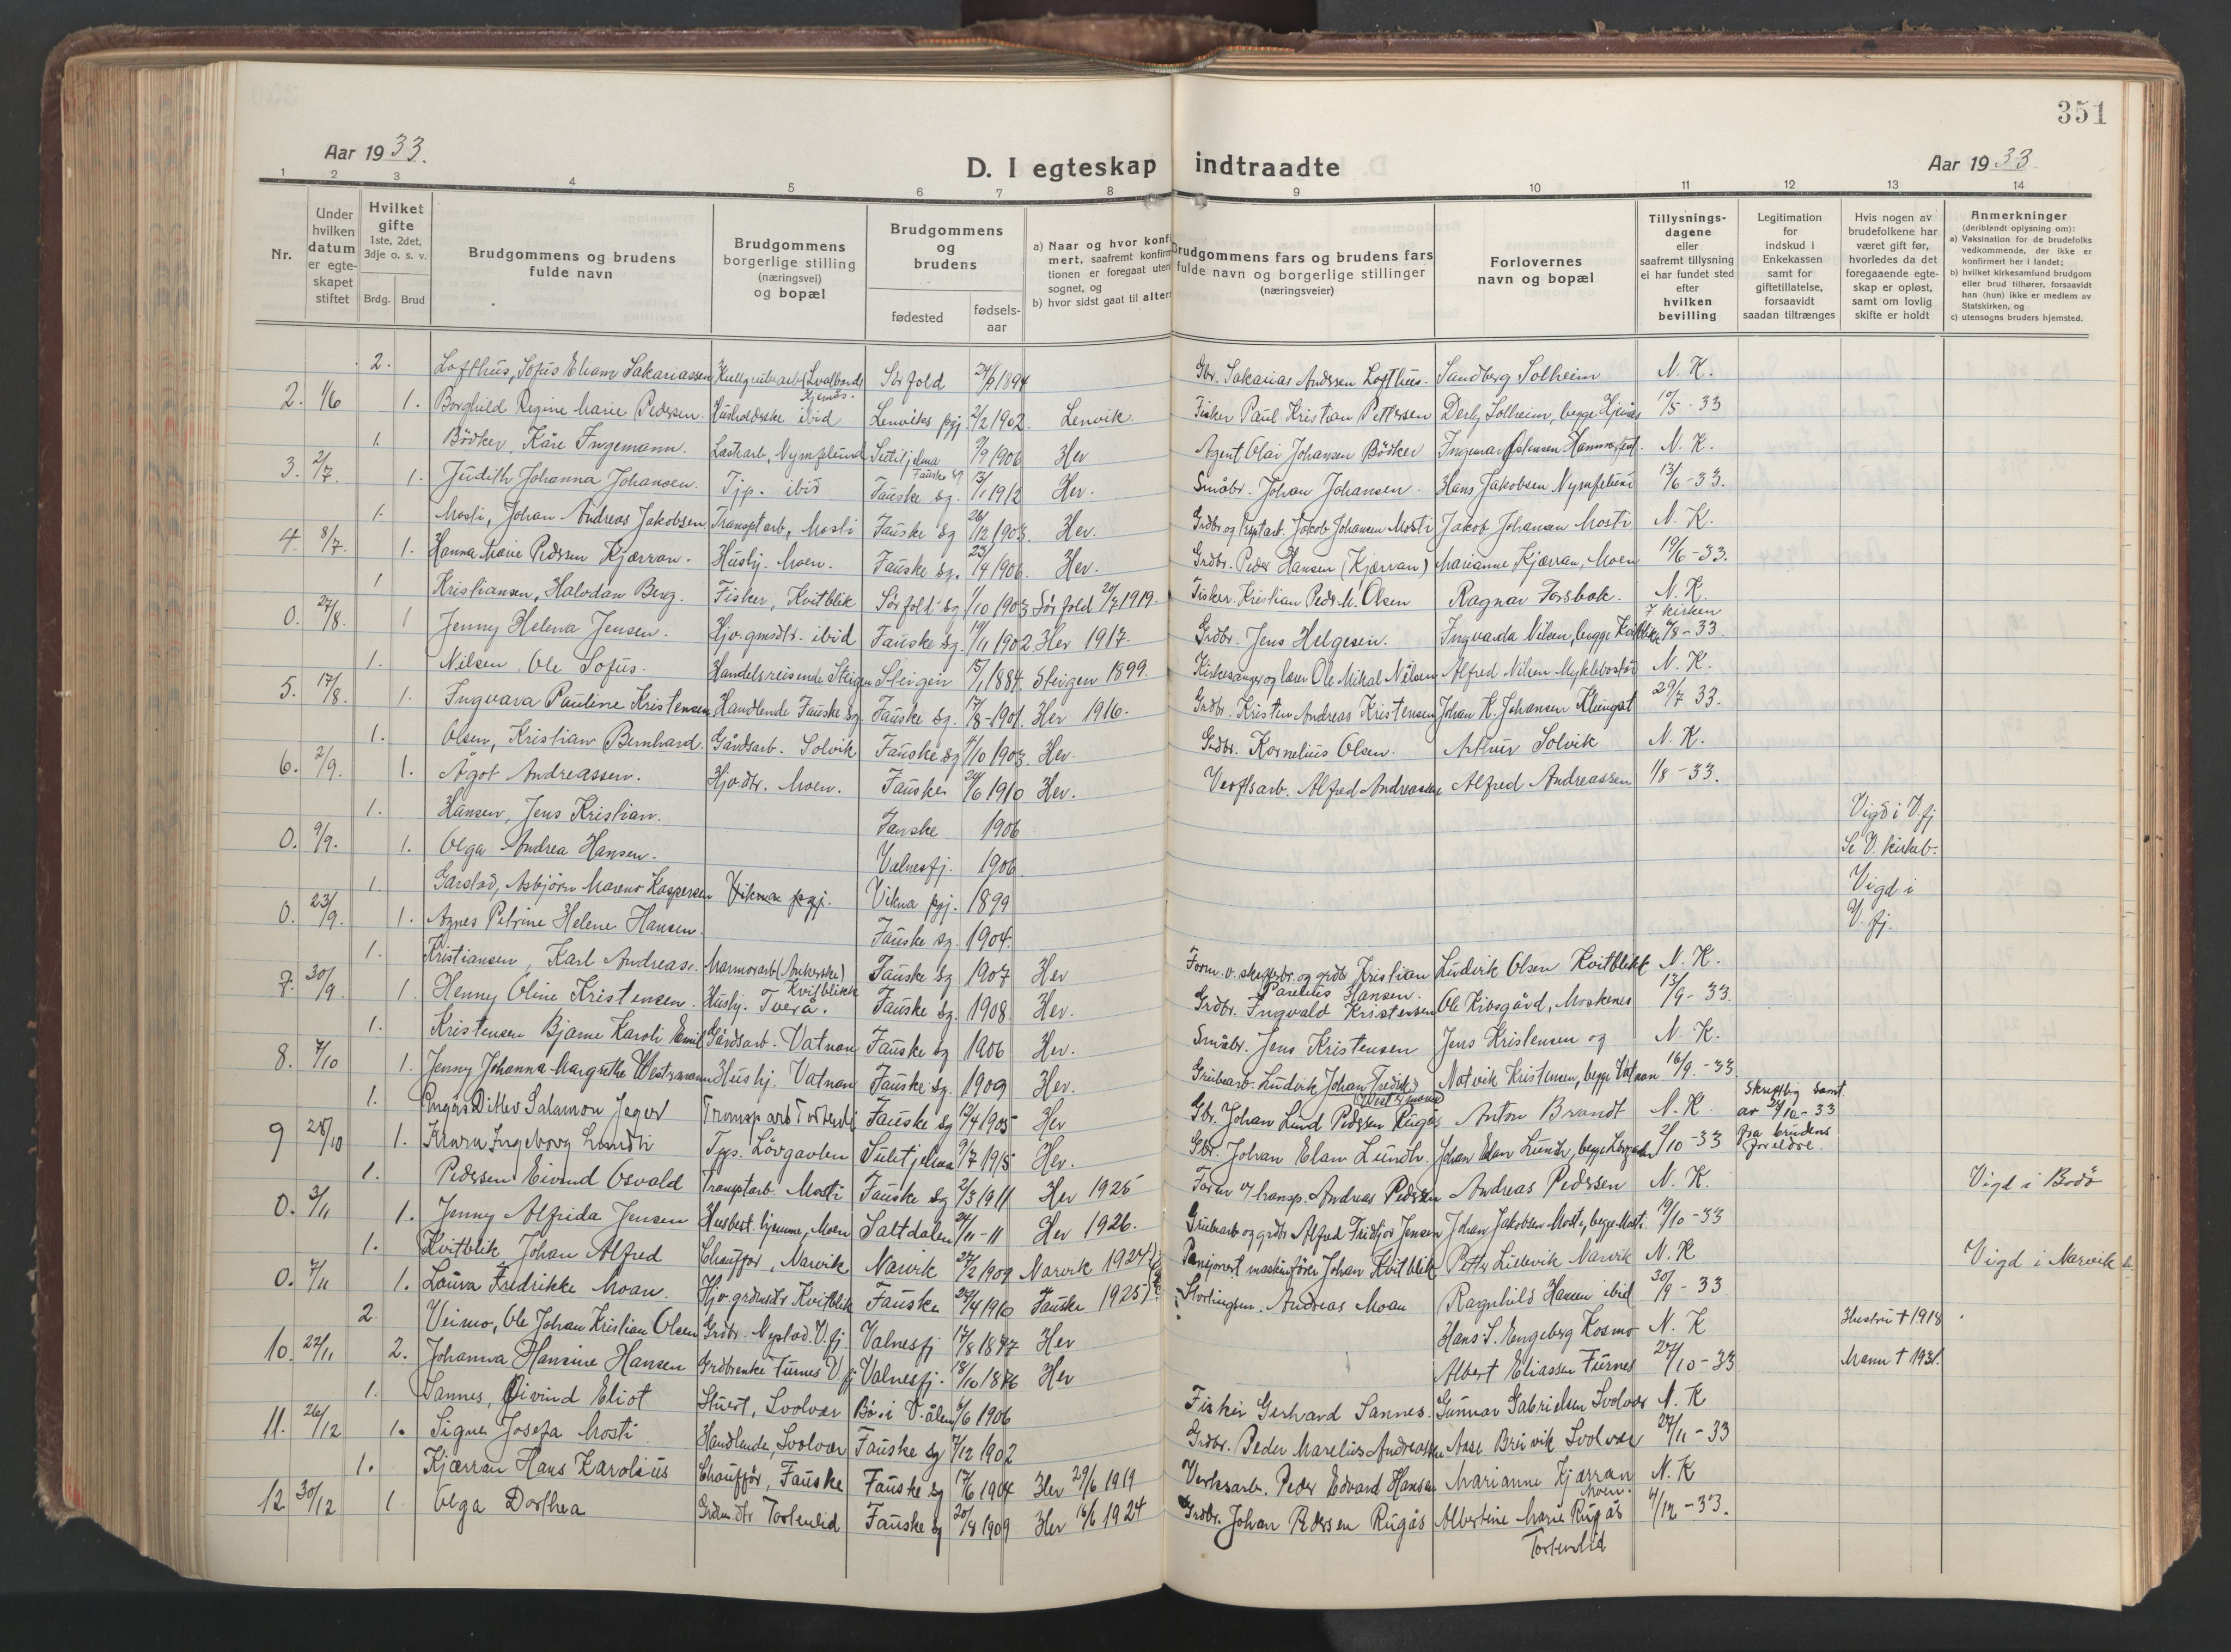 351
Aar 1933.
D. I egteskap indtraadte
Aar 1933
1 2 3 4 5 6 7 8 9 10 11 12 13 14
Nr.
Under hvilken datum er egteskapet stiftet
Hvilket gifte 1ste, 2det, 3dje o. s. v.
Brdg. Brud
Brudgommens og brudens fulde navn
Brudgommens borgerlige stilling (næringsvei) og bopæl
Brudgommens og brudens
fødested
fødsels-aar
a) Naar og hvor konfirmert, saafremt konfirmationen er foregaat uten sognet, og
b) hvor sidst gaat til alters
Brudgommens fars og brudens fars fulde navn og borgerlige stillinger (næringsveier)
Forlovernes navn og bopæl
Tillysnings-dagene eller saafremt tillysning ei har fundet sted efter hvilken bevilling
Legitimation for indskud i Enkekassen samt for giftetillatelse, forsaavidt saadan tiltrænges
Hvis nogen av brudefolkene har været gift før, hvorledes da det foregaaende egteskap er opløst, samt om lovlig skifte er holdt
Anmerkninger (deriblandt oplysning om):
a) Vaksination for de brudefolks vedkommende, der ikke er konfirmert her i landet;
b) hvilket kirkesamfund brudgom eller brud tilhører, forsaavidt han (hun) ikke er medlem av Statskirken, og
c) utensogns bruders hjemsted.
2. Lofthus, Sofus Eliam Sakariassen Sørfold 1894 Gbr. Sakarias Andssen Lofthus. Sandberg Solheim N. K.
2. 1/6 1. Borghild Regine Marie Pedersen. Husholderske ibid Lenviks pgj. 2/2 1902. Lenvik. Fisker Paul Kristian Pettersen Derly Solheim, begge Hjemås 17/5 - 33
1. Bödker, Kåre Ingemann. Lastearb, Nymplund Sulitjelma 9/9 1906 Her Agent Olai Johansen Bödker N. K.
3. 2/7. 1. Judith Johanna Johansen. Tjp. ibid Fauske sg. 13/1 1912 Her. Småbr. Johan Johansen. Hans Jakobsen Nymplund 13/6 - 33.
1. Mosti, Johan Andreas Jakobsen Transptarb, Mosti Fauske sg 26/12 1903. Her. Jakob Johansen Mosti Jakob Johansen Mosti N. K.
4. 8/7. 1. Hanna Marie Pedersen Kjærran. Hushj. Moen. Fauske sg. 23/4 1906. Her. Grdbr. Peder Hansen (Kjærran) Marianne Kjærran, Moen 19/6 - 33.
1 Kristiansen, Halvdan Berg. Fisker, Kvitblik Sörfold sg 1/10 1903 Sörfold 20/7 1919. Fisker. Kristian Peds M. Olsen Ragnar Forsbak. N. K.
0. 27/8. 1 Jenny Helena Jensen. Hjv. gmsdtr. ibid Fauske sg. 19/11 1902 Her 1917. Grdbr. Jens Helgesen. Ingvarda Nilsen, begge Kvitblik F. kirken 6/8 - 33.
1. Nilsen, Ole Sofus. Handelsreisende Steigen Steigen 15/1 1884. Steigen 1899. Kirkesanger og lærer Ole Mikal Nilsen Alfred Nilsen Myklebostad N. K.
5. 17/8. 1. Ingvara Pauline Kristensen Handlende Fauske sg. Fauske sg. 17/8 - 1901. Her 1916. Grdbr. Kristen Andreas Kristensen Johan K. Johansen Klungset 29/7 33.
1. Olsen, Kristian Bernhard. Gårdsarb. Solvik Fauske sg 4/10 1903. Her. Grdbr. Kornelius Olsen. Arthur Solvik N. K.
6. 2/9. 1. Ågot Andreassen. Hjv. dtr. Moen. Fauske 24/6 1910 Her. Verftsarb. Alfred Andreassen Alfred Andreassen 1/8 - 33.
1. Hansen, Jens Kristian. Fauske 1906 Vigd i V.fj
0. 9/9. 1. Olga Andrea Hansen. Valnesfj. 1906. Se V. kirkeb.
1. Garstad, Asbjörn Marenr Kaspersen Vikna pgj. Vikna pgj. 1899 Vigd i
0. 23/9. 1. Agnes Petrine Helene Hansen. Fauske sg. 1904. V. fj.
1. Kristiansen, Karl Andreas. Marmorarb (Ankerske) Kvitblikk Fauske sg 1907 Her Form. v. og grdbr Kristian Parelius Hansen. Ludvik Olsen Kvitblikk N. K.
7. 30/9. 1 Henny Oline Kristensen. Hushj. Tverå. Fauske sg. 1908. Her. Grdbr. Ingvald Kristensen Ole Kirsgård, Moskenes 13/9 - 33.
1. Kristensen Bjarne Karoli Emil Gårdsarb. Vatnan Fauske sg 1906 Her. Småbr. Jens Kristensen Jens Kristensen og N. K.
8. 7/10 1. Jenny Johanna Margrethe Westermann Hushj. Vatnan Fauske sg. 1909 Her. Grubearb. Ludvik Johan Fredrik Westermann Notvik Kristensen, begge Vatnan 16/9. - 33
1. Rugås Ditlev Salamon Jeger Transp arb Fauske sg 12/4 1905 Her Gbr. Johan Lund Pedersen Rugås Anton Brandt N. K. Skriftlig samt. av 24/10 - 33
9 28/10 1. Ingeborg Lundh Tjp. Lövgavlen Sulitjelma 9/7 1915 Her. Gbr. Johan Elam Lundh. Johan Elam Lundh, begge Lövgavlen 2/10 - 33 fra brudens foreldre.
1. Pedersen Eivind Osvald Transptarb. Mosti Fauske sg 2/3 1911 Her 1925 Andreas Pedersen Andreas Pedersen N. K. Vigd i Bodö
0. 3/11 1. Jenny Alfrida Jensen Husbest. hjemme, Moen Saltdalen 24/11 - 11 Her 1926. Grubearb og grdbr Alfred Fridtjov Jensen Johan Jakobsen Mosti, begge Mosti. 19/10 - 33
1. Kvitblik Johan Alfred Chauffør, Narvik Narvik 27/2 1909 Narvik 1924 Pensjonert maskinfører Johan Kvitblik Petter Lillevik Narvik N. K Vigd i Narvik
0. 7/11 1. Laura Fredrikke Moan. Hjv. grdmsdtr Kvitblik Fauske 24/4 1910 Fauske 1925 Stortingsm. Andreas Moan Ragnhild Hansen ibid 30/9 - 33
2. Veimo, Ole Johan Kristian Olsen Grdbr. Nystad. V.fj. Valnesfj 17/8 1877 Her Hans S. Engeberg Kosmo N. K Hustru † 1918
10. 22/11 2. Johanna Hansine Hansen Grdbrenke Furnes V.fj Valnesfj. 18/10 1876 Her Albert Eliassen Furnes 27/10 - 33 Mann † 1931.
1. Sannes, Øivind Eliot Stuert, Svolvær Bö i V.ålen 6/6 1906 Fisker Gerhard Sannes. Gunnar Gabrielsen Svolvær N. K
11. 26/12 1. Signe Josefa Mosti Handlende, Svolvær Fauske sg 7/12 1902 Grdbr. Peder Marelius Andreassen Aase Breivik Svolvær 27/11 - 33
1. Kjærran Hans Karolius Chauffør, Fauske Fauske sg 17/6 1904 Her 29/6 1919 Verksarb. Peder Edvard Hansen Marianne Kjærran Moen. N. K
12 30/12 1 Olga Dorthea Grdm dtr Tortenlid Fauske sg 20/8 1909 Her 15/6 1924 Grdbr. Johan Pedersen Rugås Albertine Marie Rugås 4/12 - 33.
Tortenlid